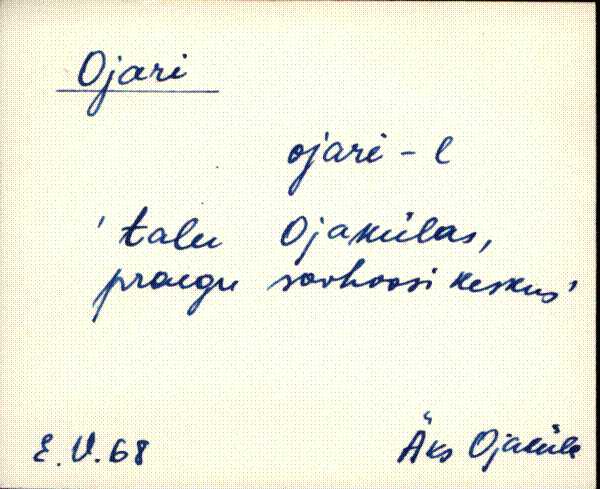 Ojari
ojari - l
'talu Ojakülas,
praegu sovhoosi keskus'
E.V.68 Äks Ojaküla